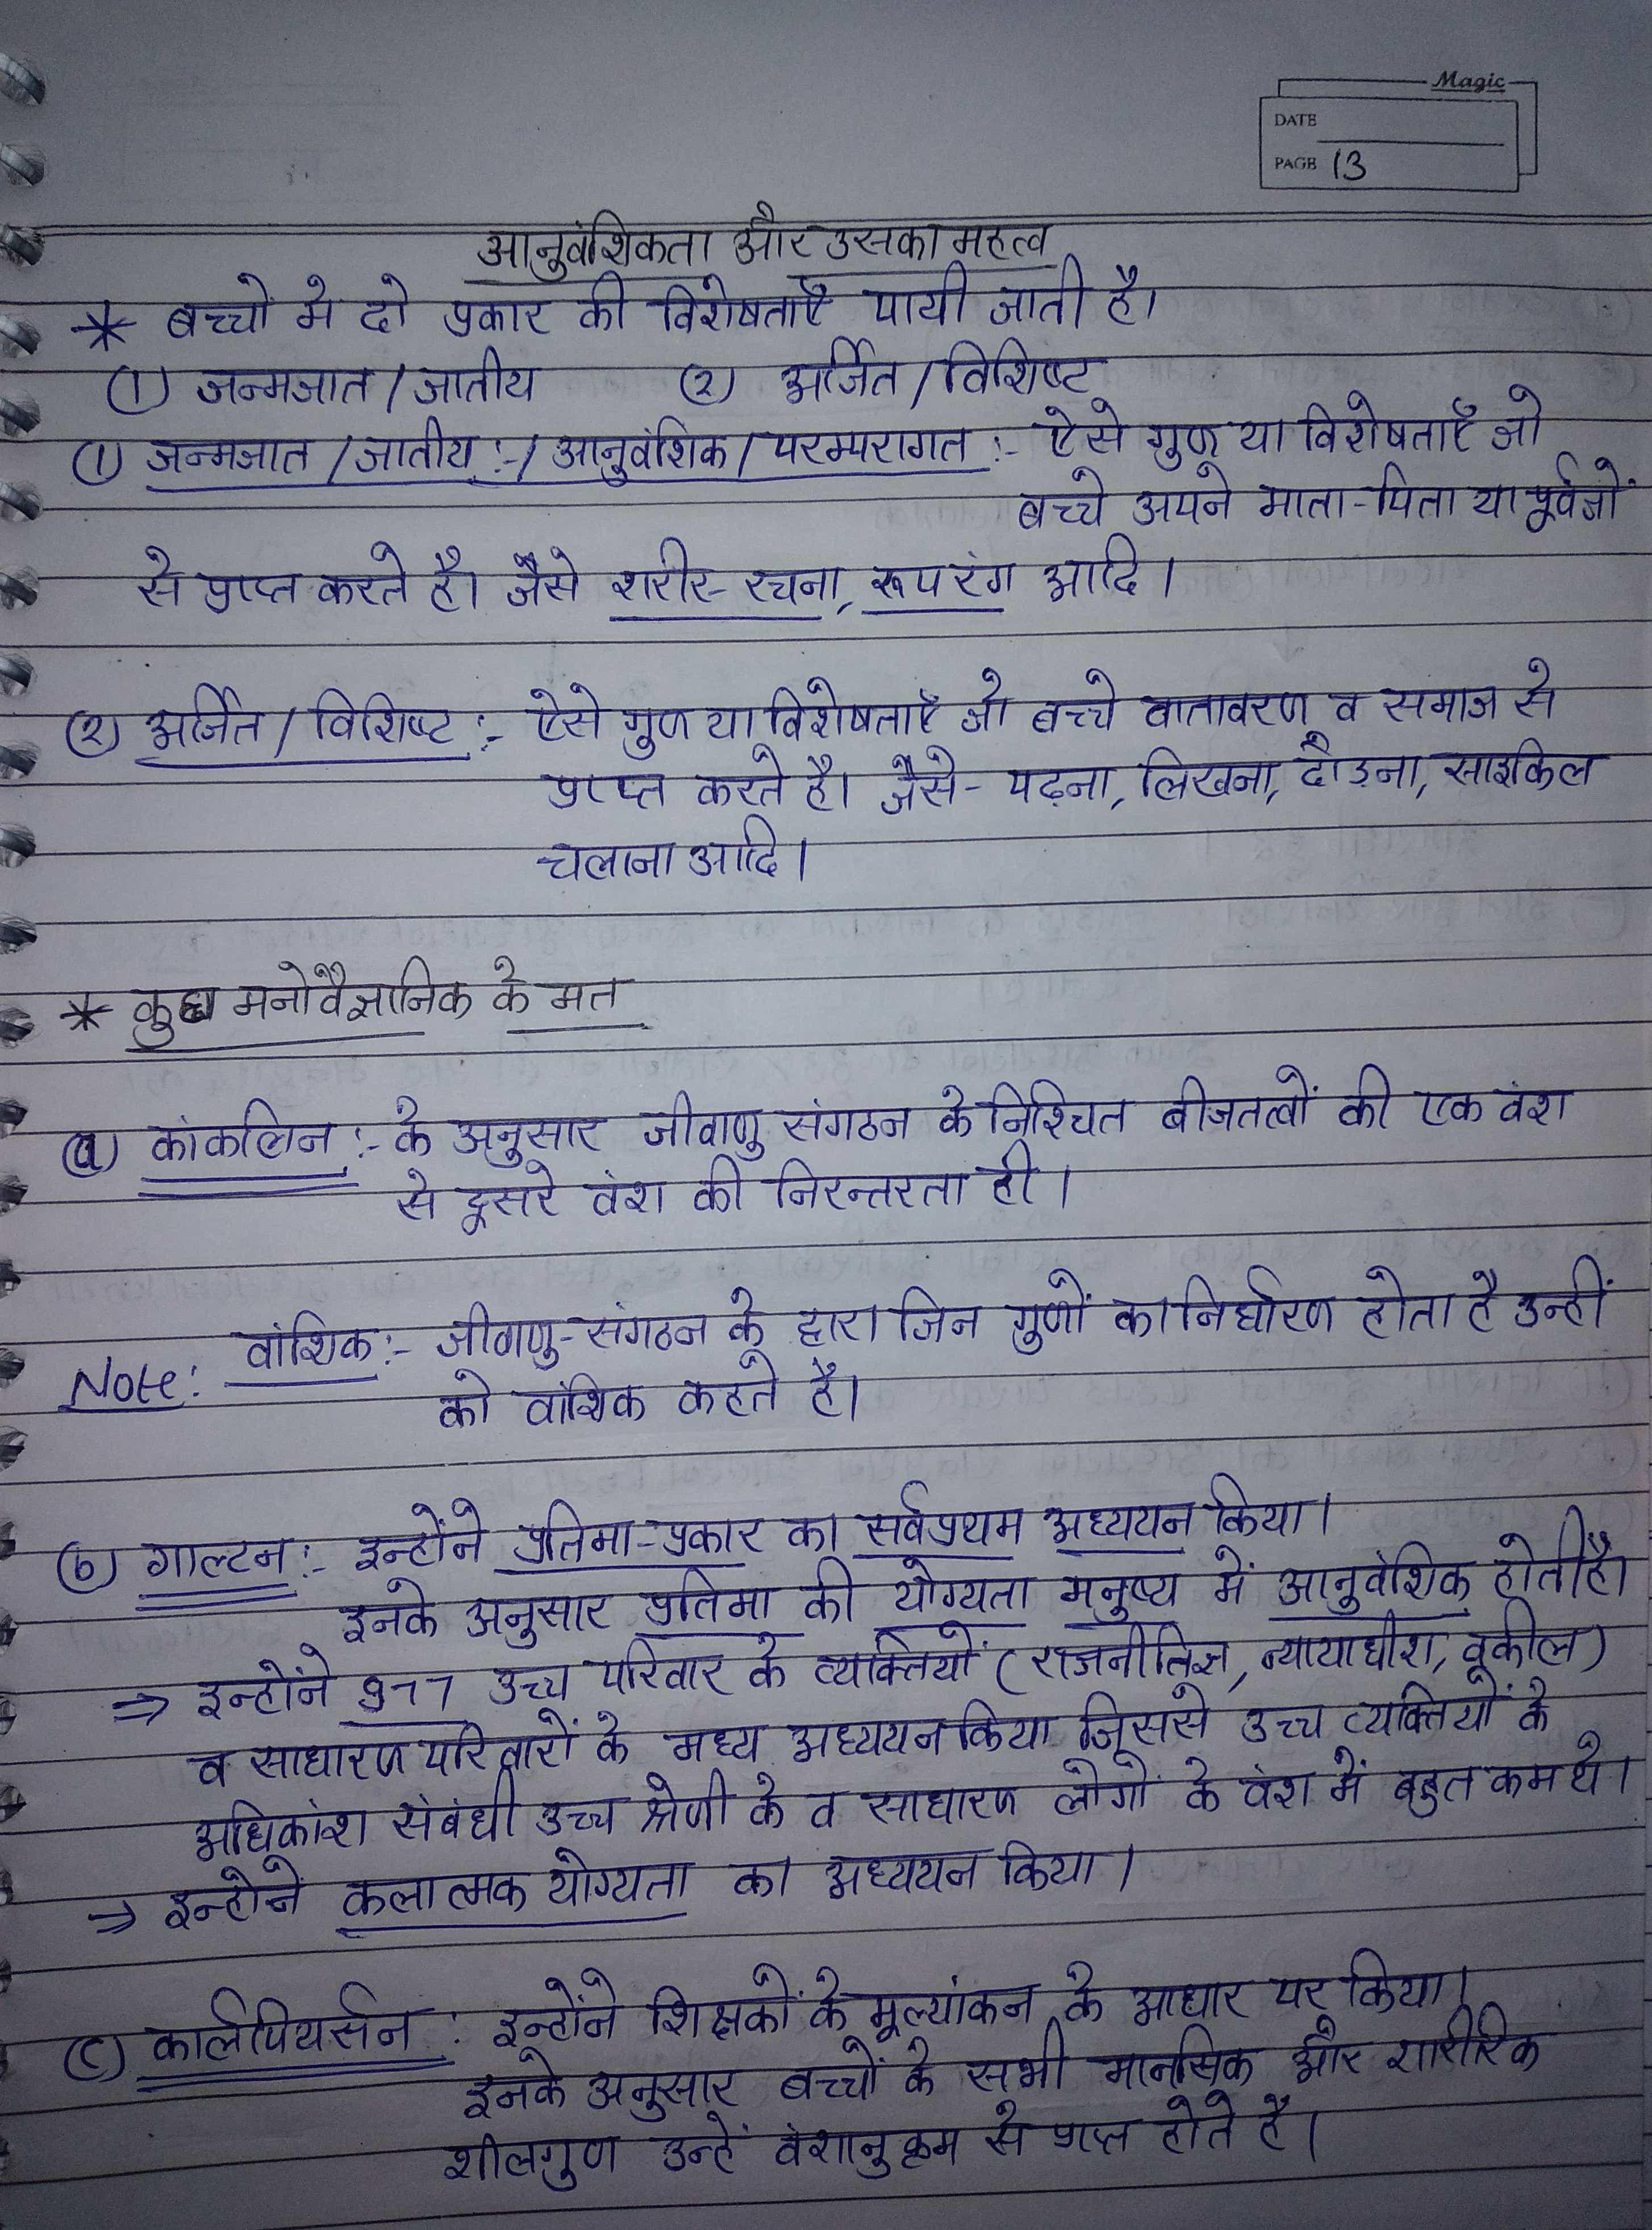 Magic
DATE
PAGE 13
आनुवंशिकता और उसका महत्व
* बच्चो मे दो प्रकार की विशेषताएँ पायी जाती है।
(1) जन्मजात / जातीय (2) अर्जित / विशिष्ट
(1) जन्मजात / जातीय :- / आनुवंशिक / परम्परागत :- ऐसे गुण या विशेषताएँ जो
बच्चे अपने माता-पिता या पूर्वजों
से प्राप्त करते है। जैसे शरीर-रचना, रूप रंग आदि।
(2) अर्जित / विशिष्ट :- ऐसे गुण या विशेषताएँ जो बच्चे वातावरण व समाज से
प्राप्त करते है। जैसे- पढ़ना, लिखना, दौड़ना, साइकिल
चलाना आदि।
* कुछ मनोवैज्ञानिक के मत
(a) कांकलिन :- के अनुसार जीवाणु संगठन के निश्चित बीजतत्वों की एक वंश
से दूसरे वंश की निरन्तरता ही।
Note: वांशिक :- जीवाणु-संगठन के द्वारा जिन गुणों का निर्धारण होता है उन्हीं
को वांशिक कहते है।
(b) गाल्टन :- इन्होंने प्रतिमा-प्रकार का सर्वप्रथम अध्ययन किया।
इनके अनुसार प्रतिमा की योग्यता मनुष्य में आनुवंशिक होती है।
⇒ इन्होंने 977 उच्च परिवार के व्यक्तियों (राजनीतिज्ञ, न्यायाधीश, वकील)
व साधारण परिवारों के मध्य अध्ययन किया जिससे उच्च व्यक्तियों के
अधिकांश संबंधी उच्च श्रेणी के व साधारण लोगों के वंश में बहुत कम थे।
⇒ इन्होने कलात्मक योग्यता का अध्ययन किया।
(c) कार्लपियर्सन : इन्होंने शिक्षकों के मूल्यांकन के आधार पर किया।
इनके अनुसार बच्चों के सभी मानसिक और शारीरिक
शीलगुण उन्हें वंशानुक्रम से प्राप्त होते है।